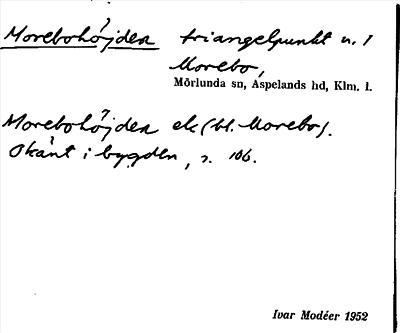 Morebohöjden triangelpunkt n. 1
Morebo,
Mörlunda sn, Aspelands hd, Klm. l.
Morebohöjden ek (bl. Morebo).
Okänt i bygden, s. 106.
Ivar Modéer 1952